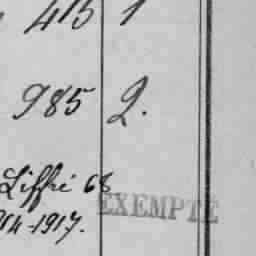 415 1
985 2.
Liffré 68
EXEMPTÉ
914-1917.